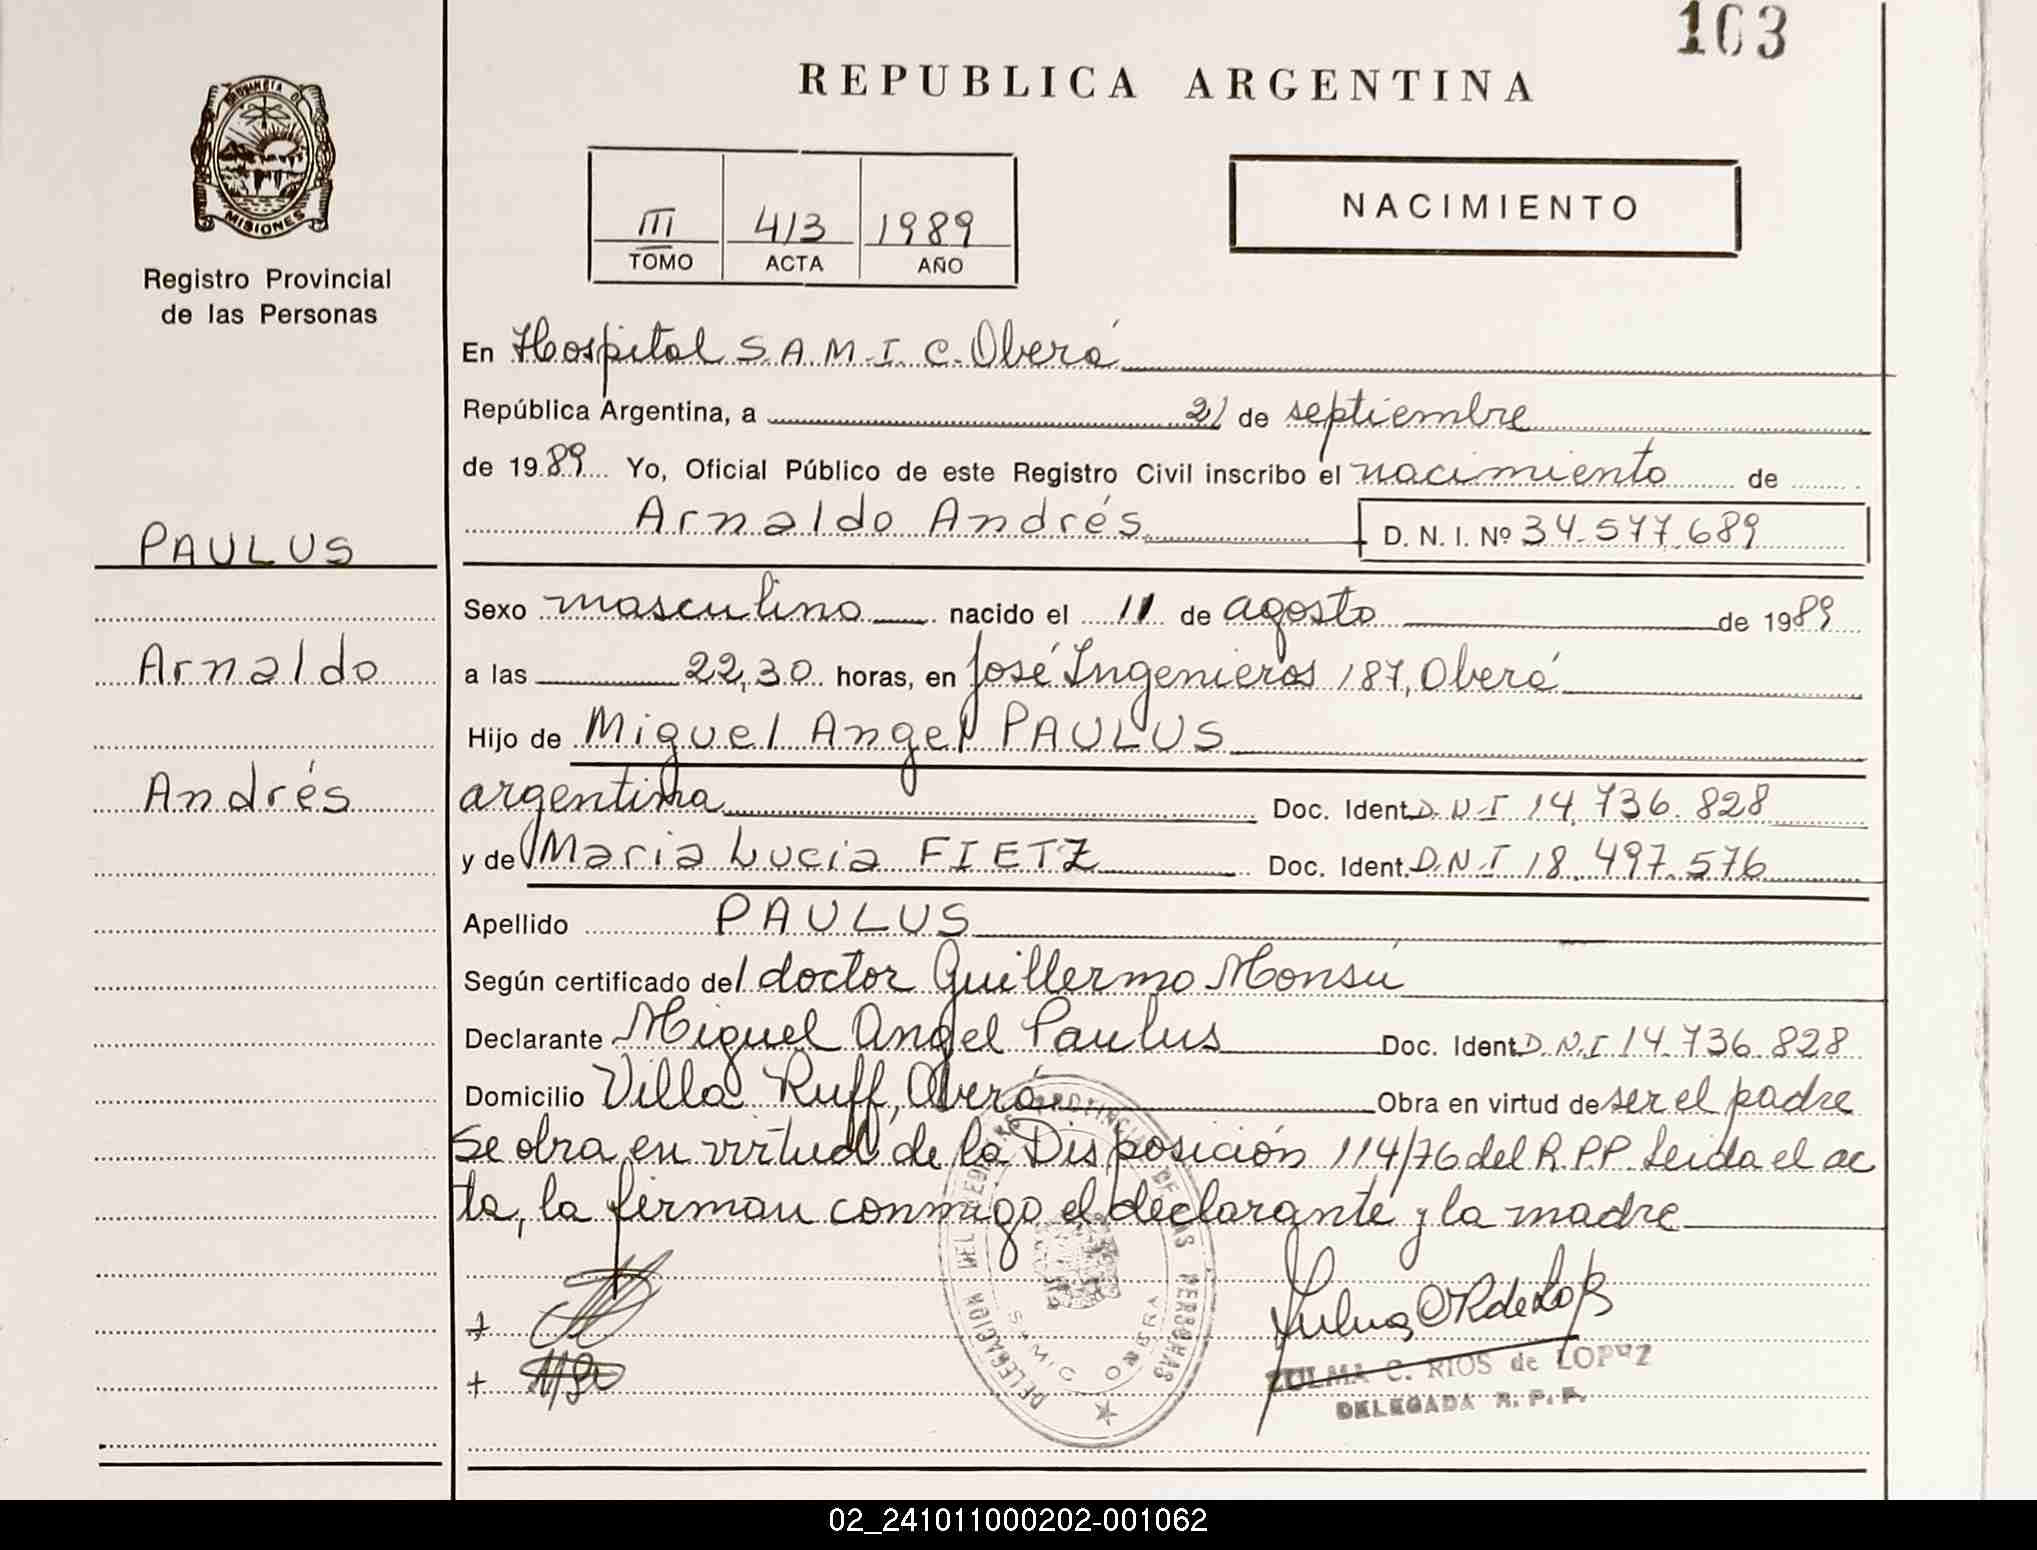 103
REPUBLICA ARGENTINA
PROVINCIA DE
MISIONES
Registro Provincial
de las Personas
III 413 1989
TOMO ACTA AÑO
NACIMIENTO
En Hospital S.A.M.I.C. Oberá
República Argentina, a 21 de septiembre
de 1989 Yo, Oficial Público de este Registro Civil inscribo el nacimiento de
Arnaldo Andrés D. N. I. Nº 34.577.689
PAULUS
Arnaldo
Andrés
Sexo masculino nacido el 11 de agosto de 1989
a las 22,30 horas, en José Ingenieros 187, Oberá
Hijo de Miguel Angel PAULUS
argentina Doc. Ident. D.N.I 14.736.828
y de Maria Lucia FIETZ Doc. Ident. D.N.I 18.497.576
Apellido PAULUS
Según certificado del doctor Guillermo Monsú
Declarante Miguel Angel Paulus Doc. Ident. D.N.I. 14.736.828
Domicilio Villa Ruff, Oberá Obra en virtud de ser el padre
Se obra en virtud de la Disposición 114/76 del R.P.P. Leida el ac
ta, la firman conmigo el declarante y la madre
DELEGACION PROVINCIAL DE LAS PERSONAS
SAMIC OBERA
ZULMA C. RIOS de LOPEZ
DELEGADA R. P. P.
02_241011000202-001062